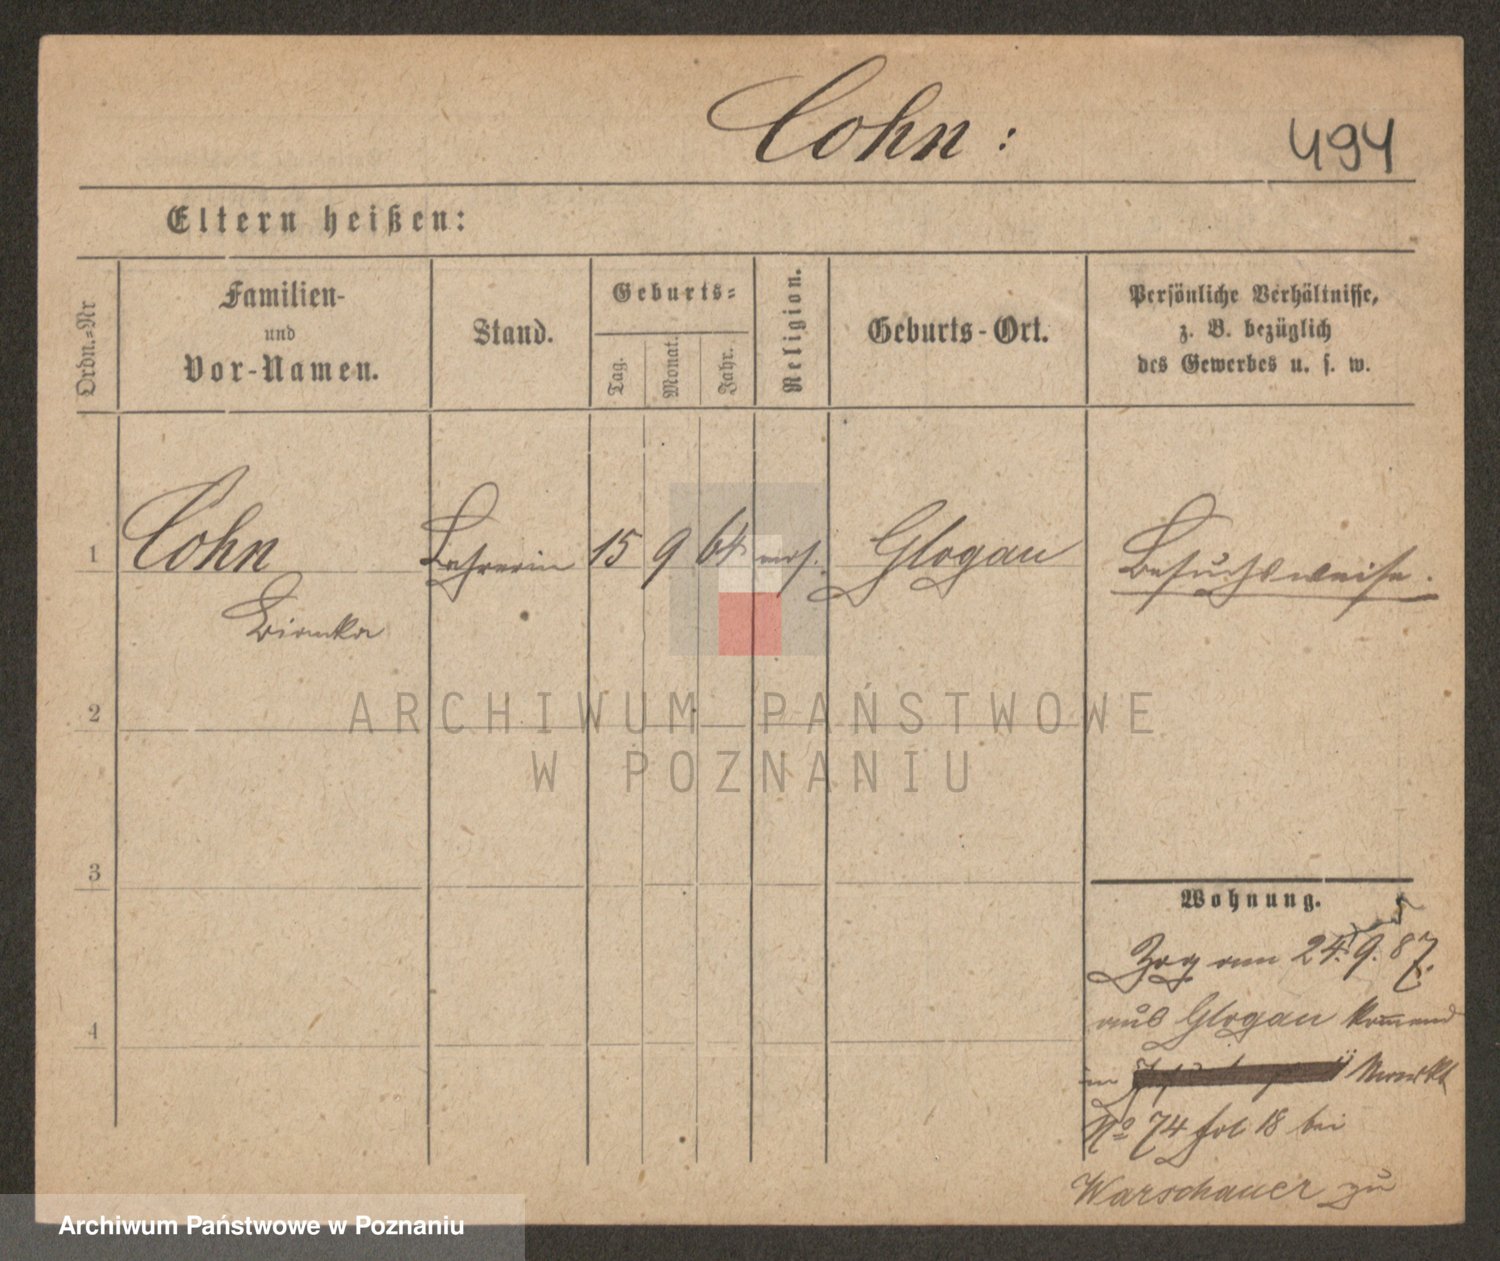 Cohn:
494
Eltern heißen:
Ordn.=Nr
Familien-
und
Vor-Namen.
Stand.
Geburts=
Tag.
Monat.
Jahr.
Religion.
Geburts-Ort.
Persönliche Verhältnisse,
z. B. bezüglich
des Gewerbes u. s. w.
1
Cohn
Lehrerin
15
9
64
mos.
Glogau
Besuchsweise.
Bianka
2
ARCHIWUM PAŃSTWOWE
W POZNANIU
3
Wohnung.
Zog am 24. 9. 87.
4
aus Glogau komend
in Markt
No 74 fol 18 bei
Warschauer zu
Archiwum Państwowe w Poznaniu